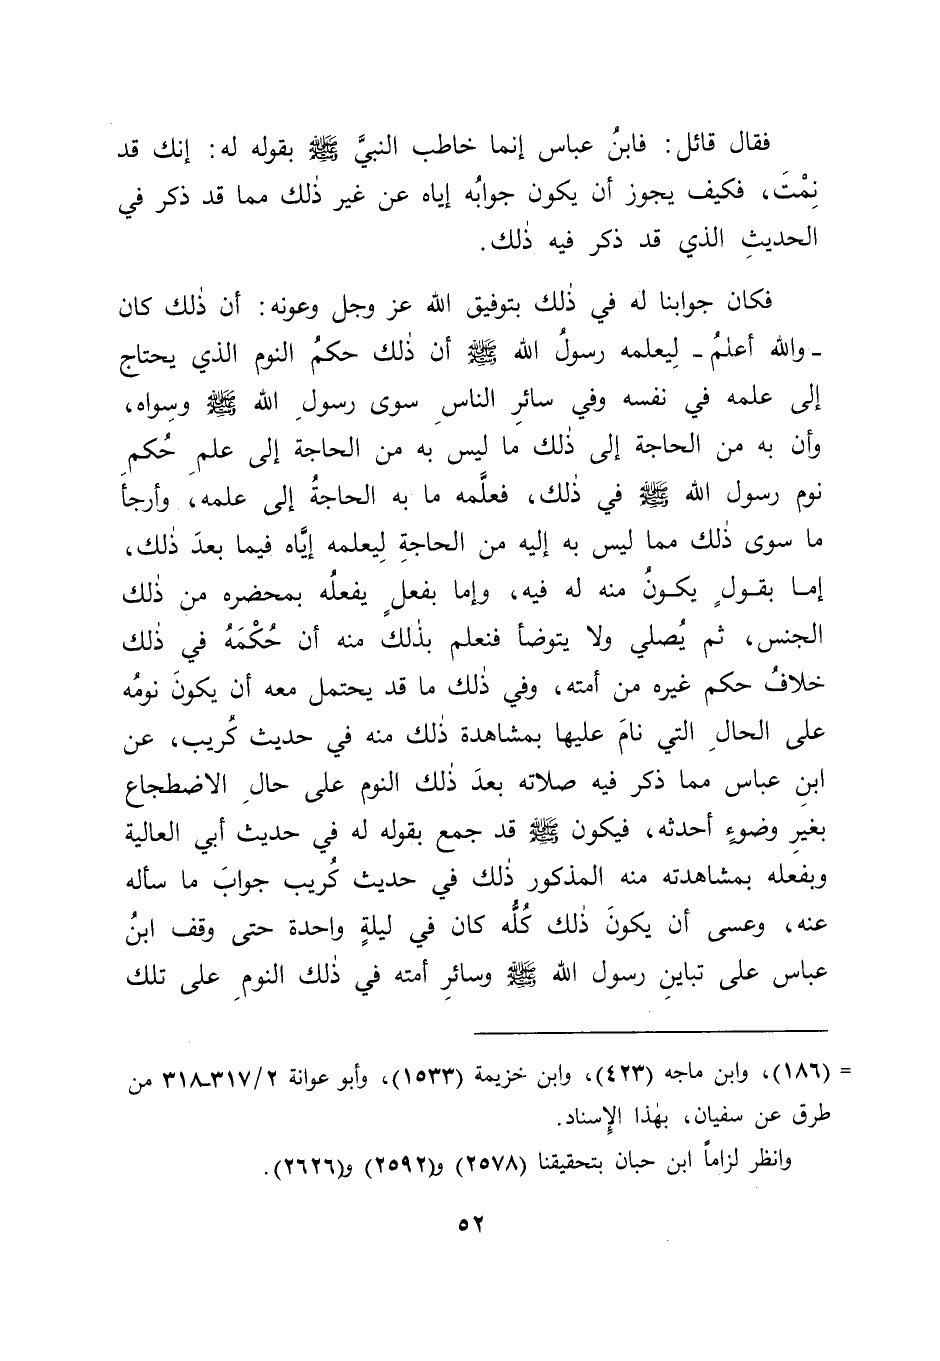 فقال قائل: فابنُ عباس إنما خاطب النبيَّ ﷺ بقوله له: إنك قد
نِمْتَ، فكيف يجوز أن يكون جوابُه إياه عن غير ذٰلك مما قد ذكر في
الحديثِ الذي قد ذكر فيه ذٰلك.
فكان جوابنا له في ذٰلك بتوفيق الله عز وجل وعونه: أن ذٰلك كان
ـ والله أعلمُ ـ لِيعلمه رسولُ الله ﷺ أن ذٰلك حكمُ النوم الذي يحتاج
إلى علمه في نفسه وفي سائرِ الناسِ سوى رسولِ الله ﷺ وسِواه،
وأن به من الحاجة إلى ذٰلك ما ليس به من الحاجة إلى علمِ حُكمِ
نوم رسول الله ﷺ في ذٰلك، فعلَّمه ما به الحاجةُ إلى علمه، وأرجأ
ما سوى ذٰلك مما ليس به إليه من الحاجةِ لِيعلمه إيَّاه فيما بعدَ ذٰلك،
إما بقولٍ يكونُ منه له فيه، وإما بفعلٍ يفعلُه بمحضره من ذٰلك
الجنس، ثم يُصلي ولا يتوضأ فنعلم بذٰلك منه أن حُكْمَهُ في ذٰلك
خلافُ حكم غيره من أمته، وفي ذٰلك ما قد يحتمل معه أن يكونَ نومُه
على الحالِ التي نامَ عليها بمشاهدة ذٰلك منه في حديث كُريب، عن
ابنِ عباس مما ذكر فيه صلاته بعدَ ذٰلك النوم على حالِ الاضطجاع
بغيرِ وضوءٍ أحدثه، فيكون ﷺ قد جمع بقوله له في حديث أبي العالية
وبفعله بمشاهدته منه المذكور ذٰلك في حديث كُريب جوابَ ما سأله
عنه، وعسى أن يكونَ ذٰلك كُلُّه كان في ليلةٍ واحدة حتى وقف ابنُ
عباس على تباينِ رسول الله ﷺ وسائرِ أمته في ذٰلك النومِ على تلك
= (١٨٦)، وابن ماجه (٤٢٣)، وابن خزيمة (١٥٣٣)، وأبو عوانة ٣١٧/٢ـ٣١٨ من
طرق عن سفيان، بهٰذا الإِسناد.
وانظر لزاماً ابن حبان بتحقيقنا (٢٥٧٨) و(٢٥٩٢) و(٢٦٢٦).
٥٢